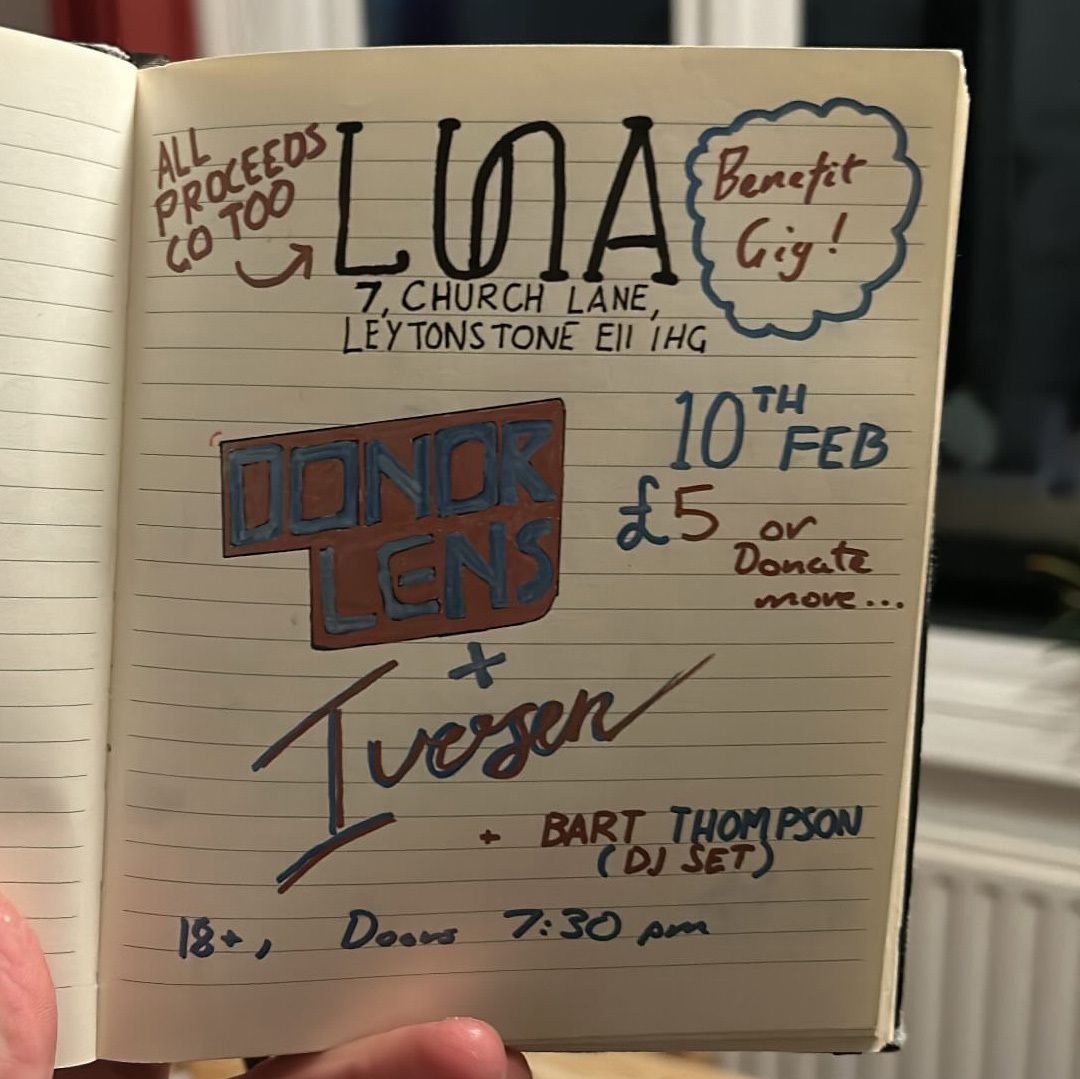 ALL
PROCEEDS
GO TOO
LUNA
Benefit
Gig!
7, CHURCH LANE,
LEYTONSTONE E11 1HG
10TH
FEB
£5 or
Donate
more...
DONOR
LENS
+
Iversen
+ BART THOMPSON
(DJ SET)
18+, Doors 7:30 pm